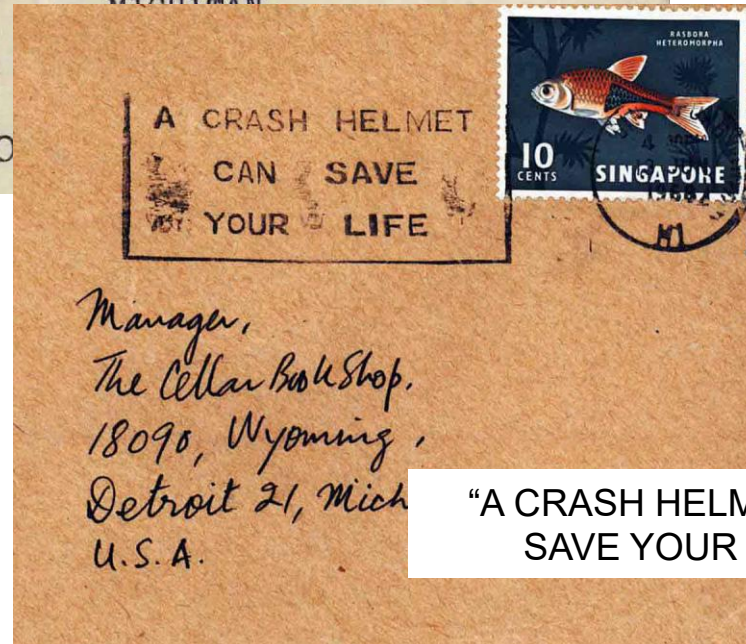 A CRASH HELMET
CAN SAVE
YOUR LIFE
RASBORA
HETEROMORPHA
10
CENTS
SINGAPORE
Manager,
The Cellar Book Shop.
18090, Wyoming,
Detroit 21, Mich
U.S.A.
“A CRASH HELM
SAVE YOUR